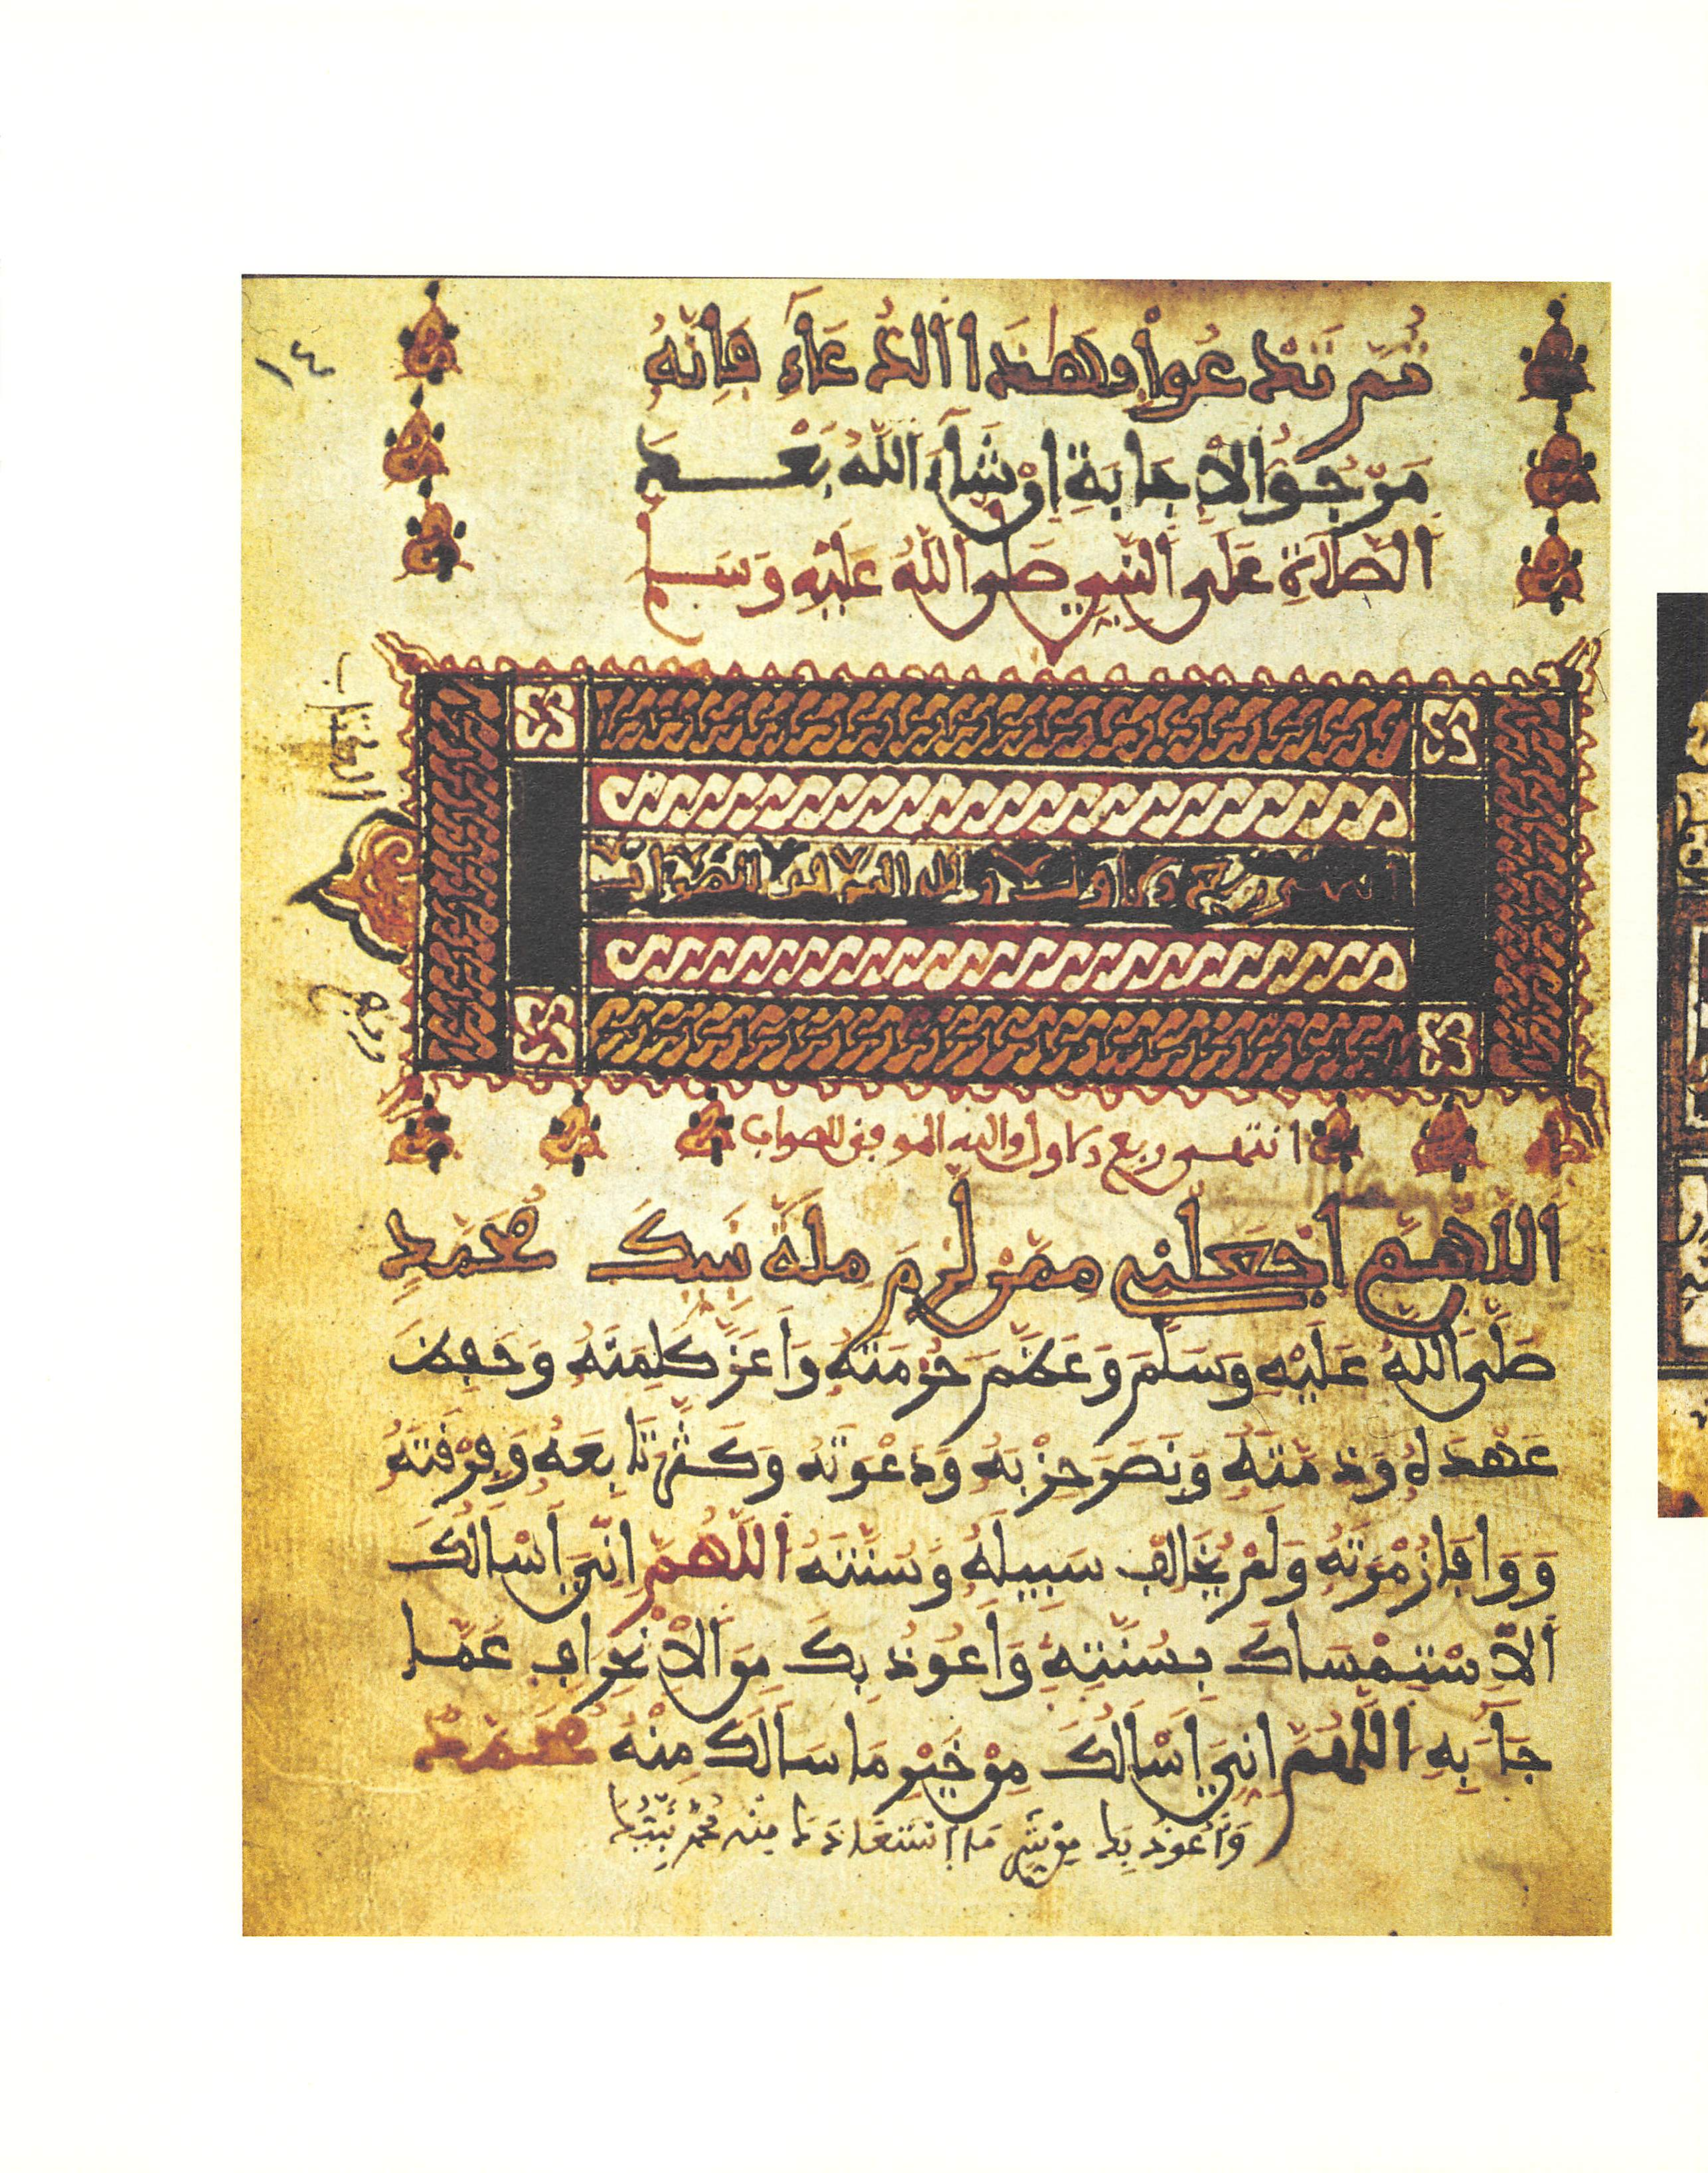 ١٤
ثُمَّ تَدْعُوا بِهَذَا الدُّعَآءِ فَإِنَّهُ
مَرْجُوُّ الْإِجَابَةِ إِنْ شَآءَ اللَّهُ بَعْدَ
الصَّلَاةِ عَلَى النَّبِيِّ صَلَّى اللَّهُ عَلَيْهِ وَسَلَّمَ
ربع الكتاب
انتهى ربع الاول والله الموفق للصواب
انتهى ربع الاول والله الموفق للصواب
اللَّهُمَّ اجْعَلْنِي مِمَّنْ لَزِمَ مِلَّةَ نَبِيِّكَ مُحَمَّدٍ
صَلَّى اللَّهُ عَلَيْهِ وَسَلَّمَ وَعَظَّمَ حُرْمَتَهُ وَأَعَزَّ كَلِمَتَهُ وَحَفِظَ
عَهْدَهُ وَذِمَّتَهُ وَنَصَرَ حِزْبَهُ وَدَعْوَتَهُ وَكَثَّرَ تَابِعَهُ وَفِرْقَتَهُ
وَوَافَا زُمْرَتَهُ وَلَمْ يُخَالِفْ سَبِيلَهُ وَسُنَّتَهُ اللَّهُمَّ إِنِّي أَسْأَلُكَ
الْاِسْتِمْسَاكَ بِسُنَّتِهِ وَأَعُوذُ بِكَ مِنَ الْاِنْحِرَافِ عَمَّا
جَآءَ بِهِ اللَّهُمَّ إِنِّي أَسْأَلُكَ مِنْ خَيْرِ مَا سَأَلَكَ مِنْهُ مُحَمَّدٌ
وَأَعُوذُ بِكَ مِنْ شَرِّ مَا اسْتَعَاذَكَ مِنْهُ مُحَمَّدٌ نَبِيُّكَ